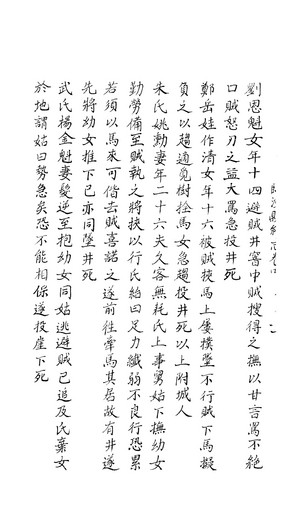 劉恩魁女年十四避賊井窖中賊搜得之撫以甘言罵不絕
口賊怒刃之益大罵急投井死
鄭岳娃作清女年十六被賊挾馬上屢撲墜不行賊下馬擬
負之以趨適覓樹拴馬女急趨投井死以上附城人
朱氏姚勳妻年二十六夫久客無耗氏上事舅姑下撫幼女
勤勞備至賊執之將挾以行氏紿曰足力纖弱不良行恐累
若須以馬來可偕去賊喜諾之遂前往牽馬其居故有井遂
先將幼女推下已亦同墜井死
武氏楊金魁妻髮逆至抱幼女同姑逃避賊已追及氏棄女
於地謂姑曰勢急矣恐不能相保遂投崖下死